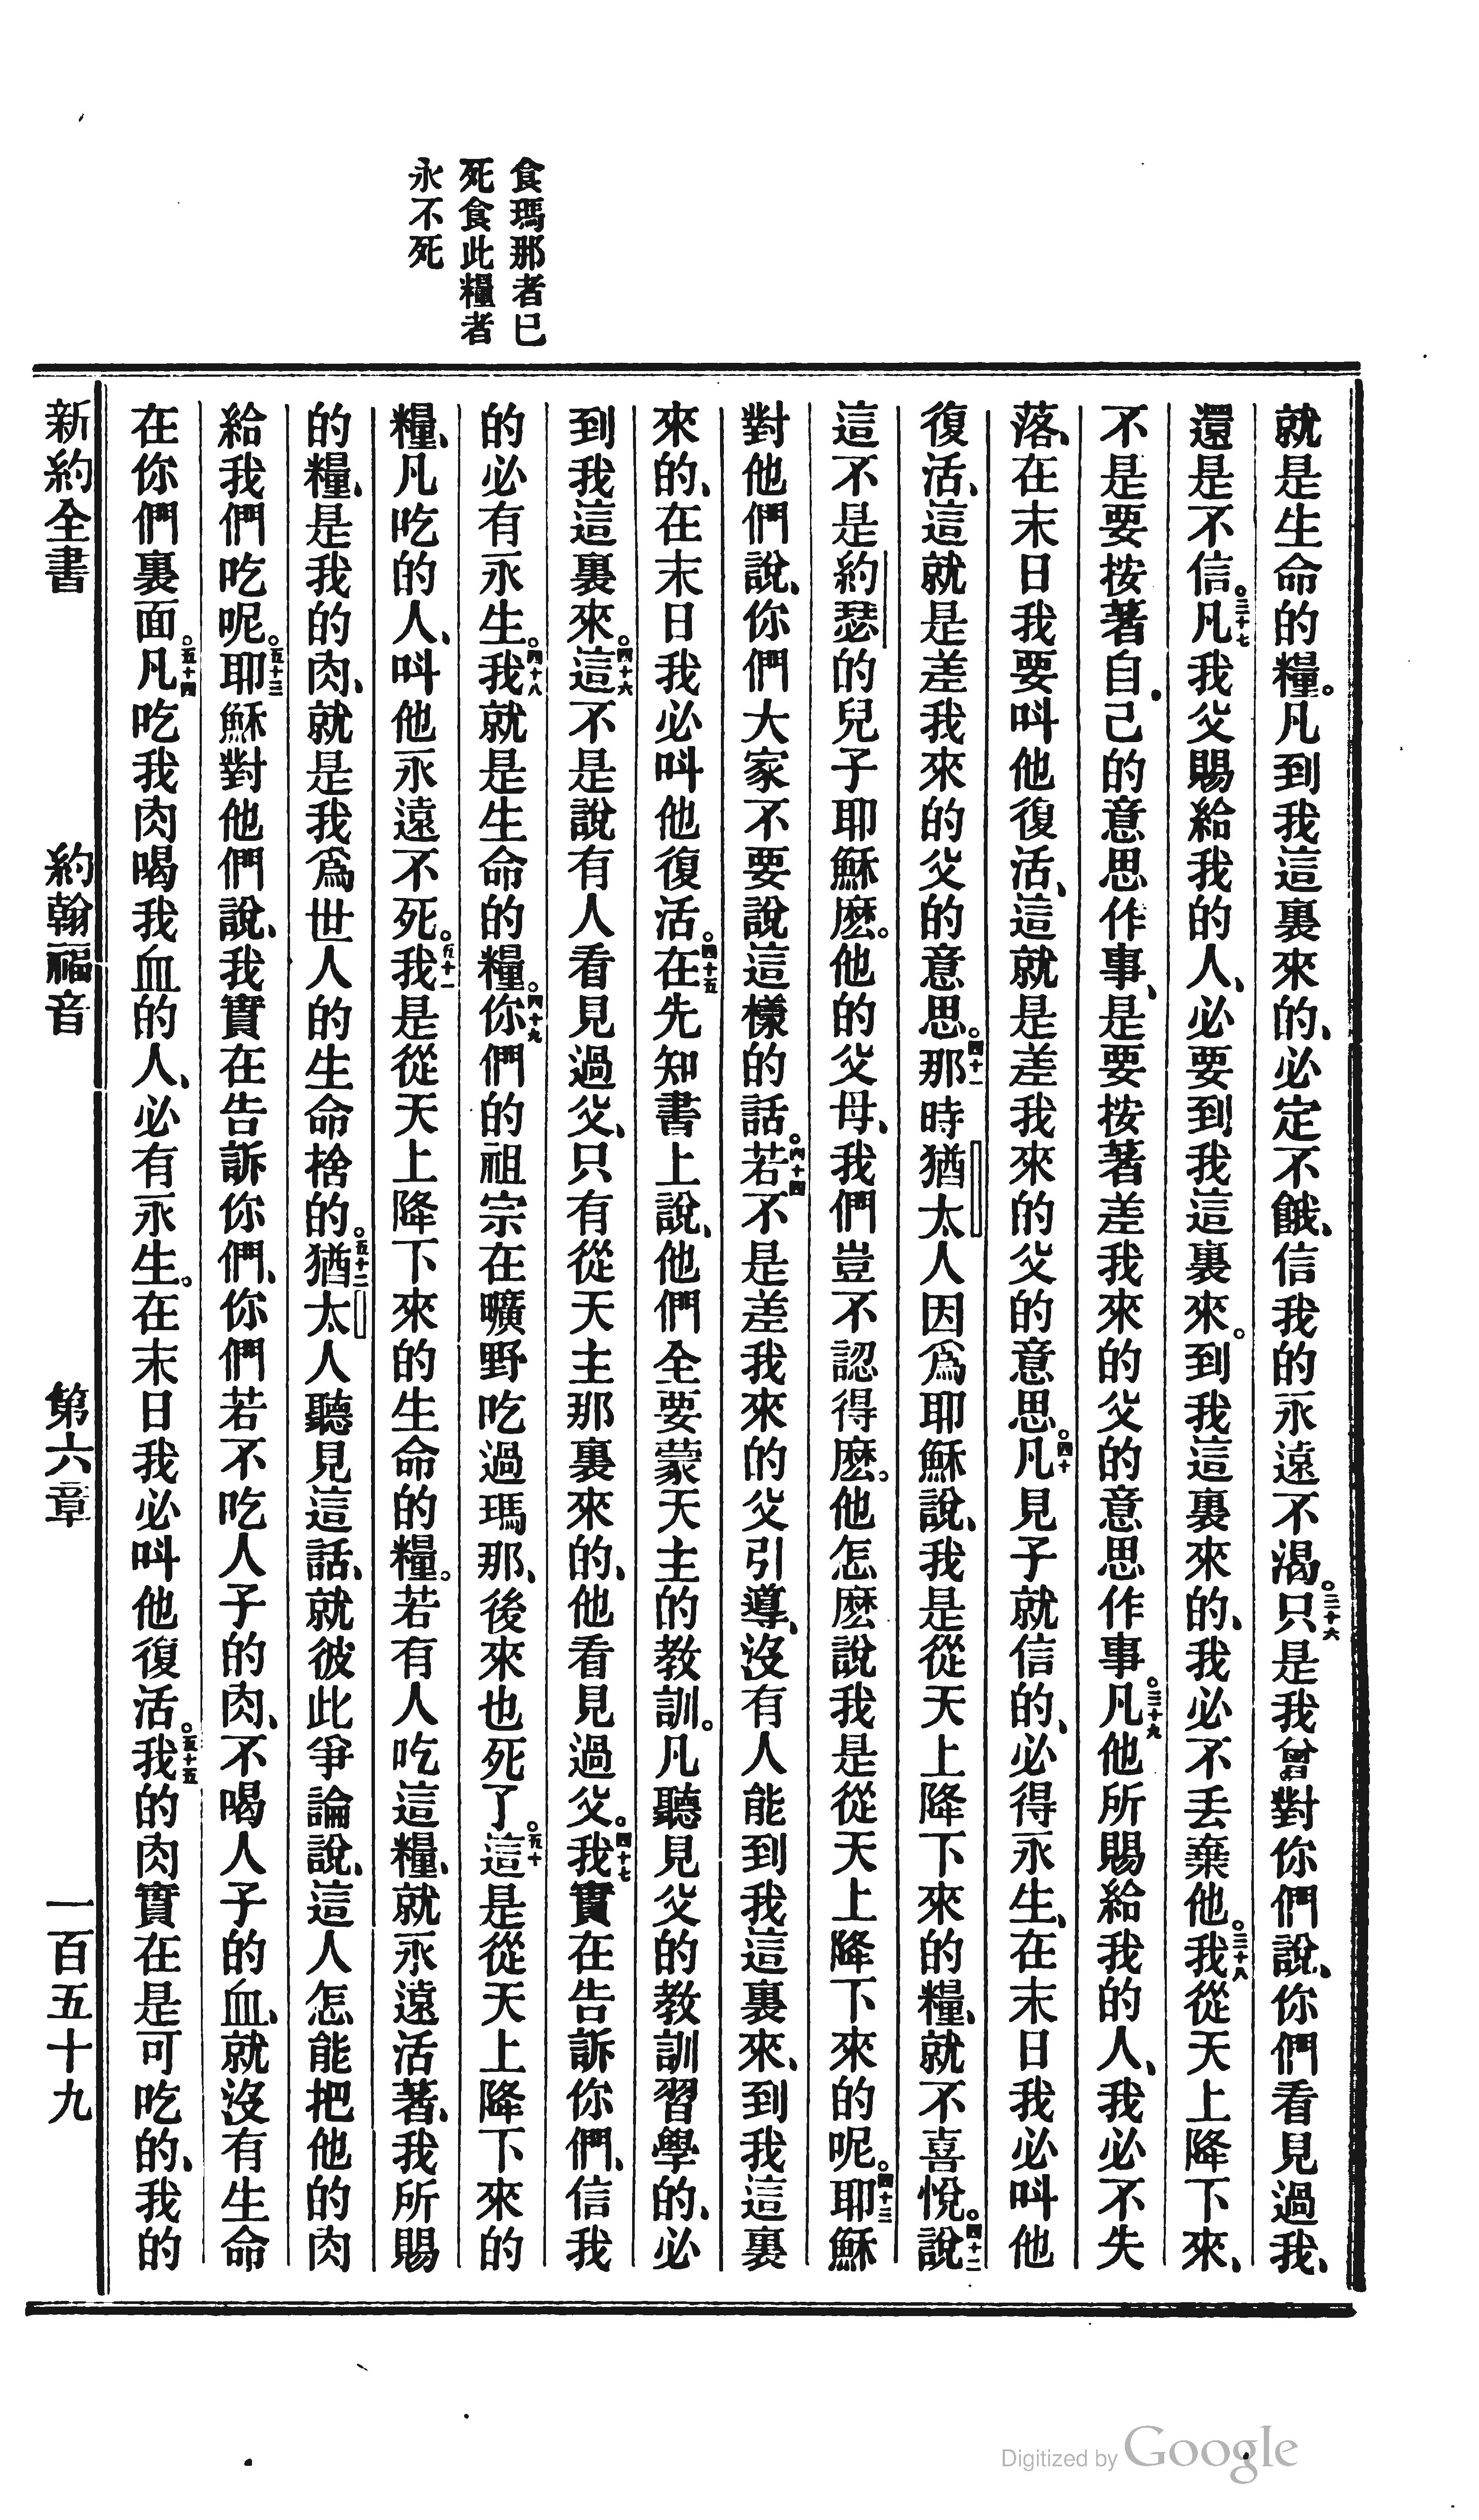 食瑪那者已
死食此糧者
永不死
就是生命的糧。凡到我這裏來的、必定不餓、信我的永遠不渴。三十六只是我曾對你們說、你們看見過我、
還是不信。三十七凡我父賜給我的人、必要到我這裏來。到我這裏來的、我必不丟棄他。三十八我從天上降下來、
不是要按著自己的意思作事、是要按著差我來的父的意思作事。三十九凡他所賜給我的人、我必不失
落、在末日我要呌他復活、這就是差我來的父的意思。四十凡見子就信的、必得永生、在末日我必呌他
復活、這就是差我來的父的意思。四十一那時猶太人因爲耶穌說、我是從天上降下來的糧、就不喜悅。四十二說
這不是約瑟的兒子耶穌麽。他的父母、我們豈不認得麽。他怎麽說我是從天上降下來的呢。四十三耶穌
對他們說、你們大家不要說這樣的話。四十四若不是差我來的父引導、沒有人能到我這裏來、到我這裏
來的、在末日我必呌他復活。四十五在先知書上說、他們全要蒙天主的教訓。凡聽見父的教訓習學的、必
到我這裏來。四十六這不是說有人看見過父、只有從天主那裏來的、他看見過父。四十七我實在告訴你們、信我
的必有永生。四十八我就是生命的糧。四十九你們的祖宗在曠野吃過瑪那、後來也死了。五十這是從天上降下來的
糧、凡吃的人、呌他永遠不死。五十一我是從天上降下來的生命的糧。若有人吃這糧、就永遠活著、我所賜
的糧、是我的肉、就是我爲世人的生命捨的。五十二猶太人聽見這話、就彼此爭論說、這人怎能把他的肉
給我們吃呢。五十三耶穌對他們說、我實在告訴你們、你們若不吃人子的肉、不喝人子的血、就沒有生命
在你們裏面。五十四凡吃我肉喝我血的人、必有永生。在末日我必呌他復活。五十五我的肉實在是可吃的、我的
新約全書　約翰福音　第六章　一百五十九
Digitized by Google